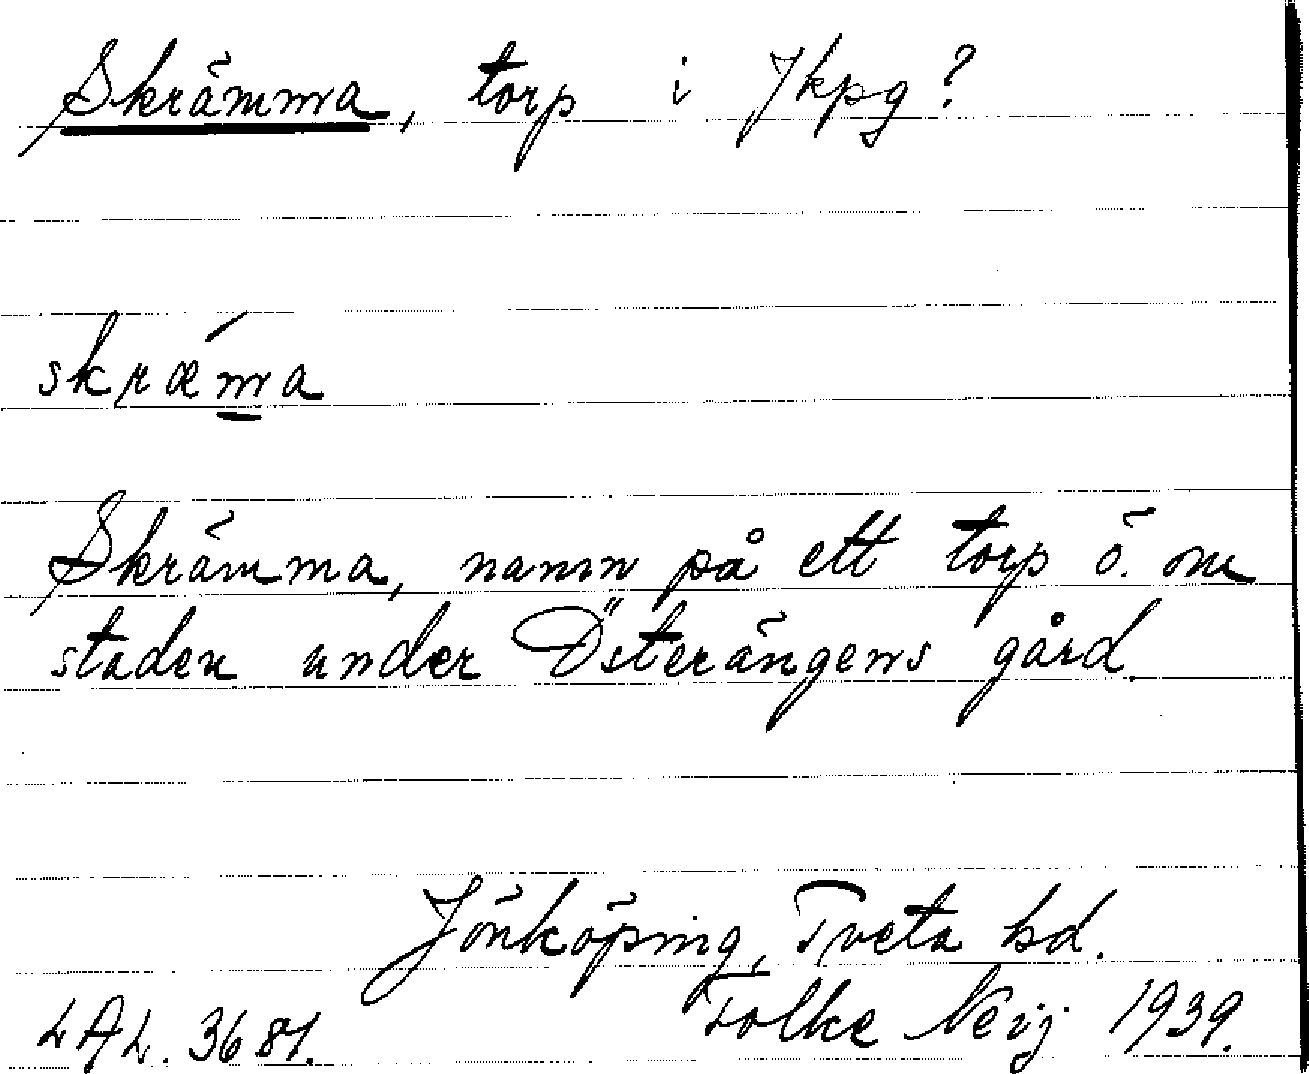 Skrämma, torp i Jkpg?
skræ´ma
Skrämma, namn på ett torp ö. om
staden under Österängens gård.
Jönköping, Tveta hd.
LAL. 3681. Folke Neij 1939.